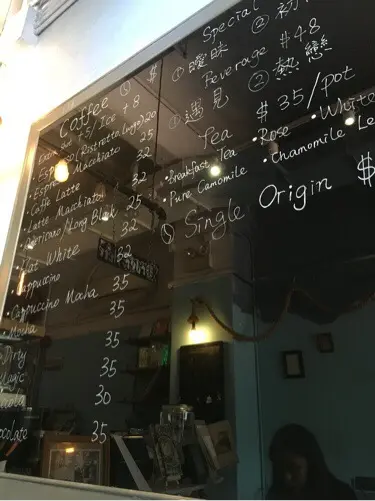 Coffee ① $
Extra shot +5/Ice +8
Espresso (Ristretto/Lugo) 20
Espresso Macchiato 25
Caffe Latte 32
Latte Macchiato 32
Americano/Long Black 25
Flat White 32
Cappuccino 32
Cappuccino Mocha 35
Mocha 35
Dirty 35
Magic 30
Chocolate 35
Special
① 曖昧 ② 初
Beverage #48
① 遇見 ② 熱戀
Tea $35/pot
•Breakfast Tea •Rose •White
•Pure Camomile •Chamomile Le
① Single Origin $